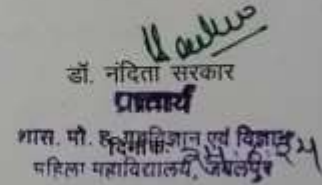 डॉ. नंदिता सरकार
प्राचार्य
शास. मो. ह. गृहविज्ञान एवं विज्ञान
दिनांक
महिला महाविद्यालय, जबलपुर